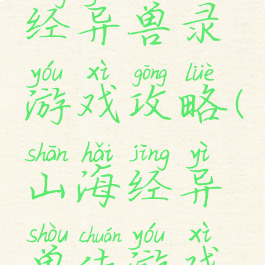 经异兽录
yóu xì gōng lüè
游戏攻略(
shān hǎi jīng yì
山海经异
shòu chuán yóu xì
兽传游戏